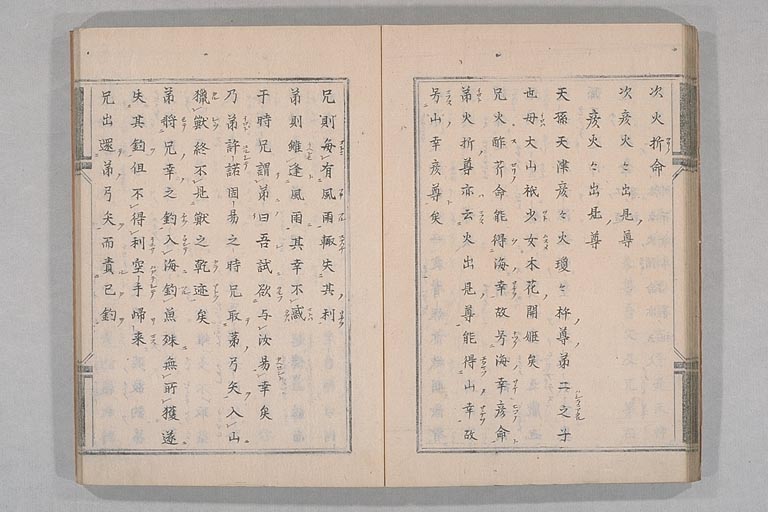 次火折命
次彦火々出見尊
彦火々出見尊
天孫天津彦々火瓊々杵尊第二之子
也母大山祇少女木花開姬矣
兄火酢芹命能得海幸故号海幸彦命
弟火折尊亦云火火出見尊能得山幸故
号山幸彦尊矣
兄則每有風雨輙失其利
弟則雖逢風雨其幸不忒
于時兄謂弟曰吾試欲与汝易幸矣
乃弟許諾因易之時兄取弟弓矢入山
獵獸終不見獸之乾迹矣
弟將兄幸之釣入海釣魚殊無所獲遂
失其釣但不得利空手歸来
兄出還弟弓矢而責己釣